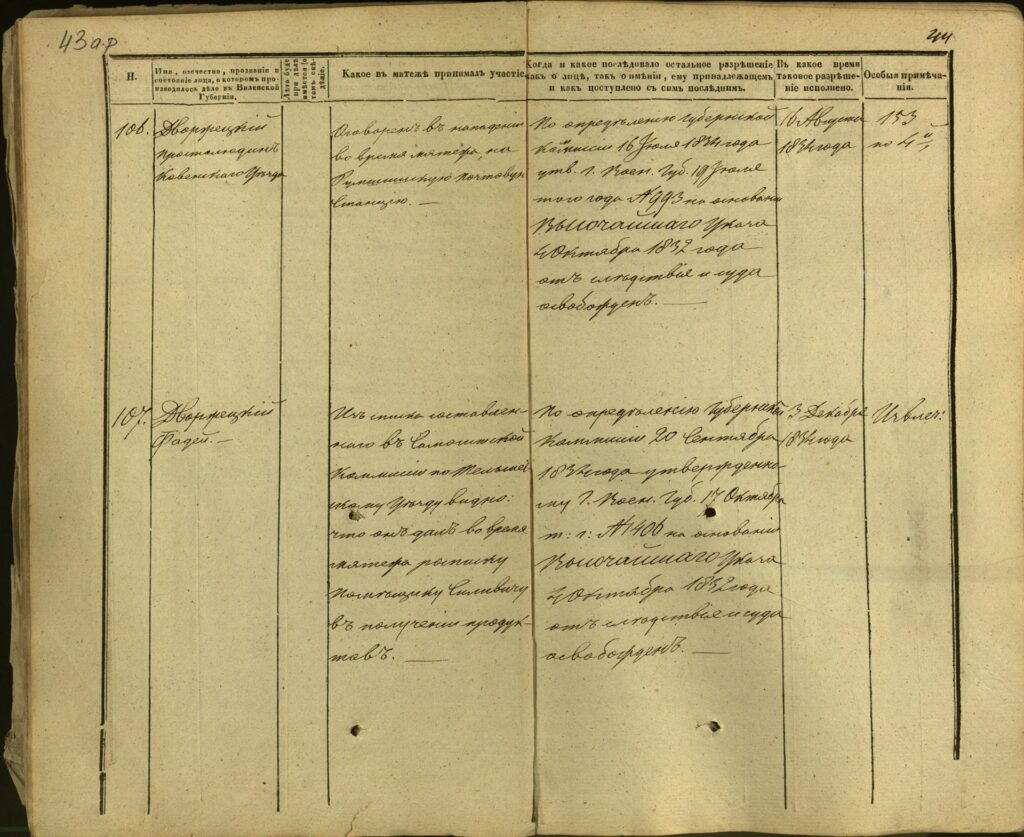 43 ар
44
Н.
Имя, отечество, прозваніе и
состояніе лица, о которомъ про-
изводилось дѣло въ Виленской
Губерніи.
Какое въ мятежѣ принималъ участіе
Когда и какое послѣдовало остальное разрѣшеніе
какъ о лицѣ, такъ о имѣніи, ему принадлежащемъ
и какъ поступлено съ симъ послѣднимъ.
Въ какое время
таковое разрѣше-
ніе исполнено.
Особыя примѣча-
нія.
106.
Дворжецкій
простолюдинъ
Ковенскаго Уѣзда
Оговоренъ въ нападеніи
во время мятежа, на
Румшишскую почтовую
Станцію. —
По опредѣленію Губернской
Комисіи 16 Іюля 1834 года
утв. г. Воен. Губ. 19 Іюля
того года № 993 на основаніи
Высочайшаго Указа
4 Октября 1832 года
отъ слѣдствія и суда
освобожденъ. —
16 Августа
1834 года
153
по 4й
107.
Дворжецкій
Фадей. —
Изъ списка составлен-
наго въ
Коммисіи по Тельшев-
скому Уѣзду видно:
что онъ далъ во время
мятежа росписку
помѣщику
въ полученіи продук-
товъ. —
По опредѣленію Губернской
Коммисіи 20 Сентября
1834 года утвержденно-
му г. Воен. Губ. 17 Октября
т: г: № 1406 на основаніи
Высочайшаго Указа
4 Октября 1832 года
отъ слѣдствія и суда
освобожденъ. —
3 Декабря
1834 года
Извлеч: